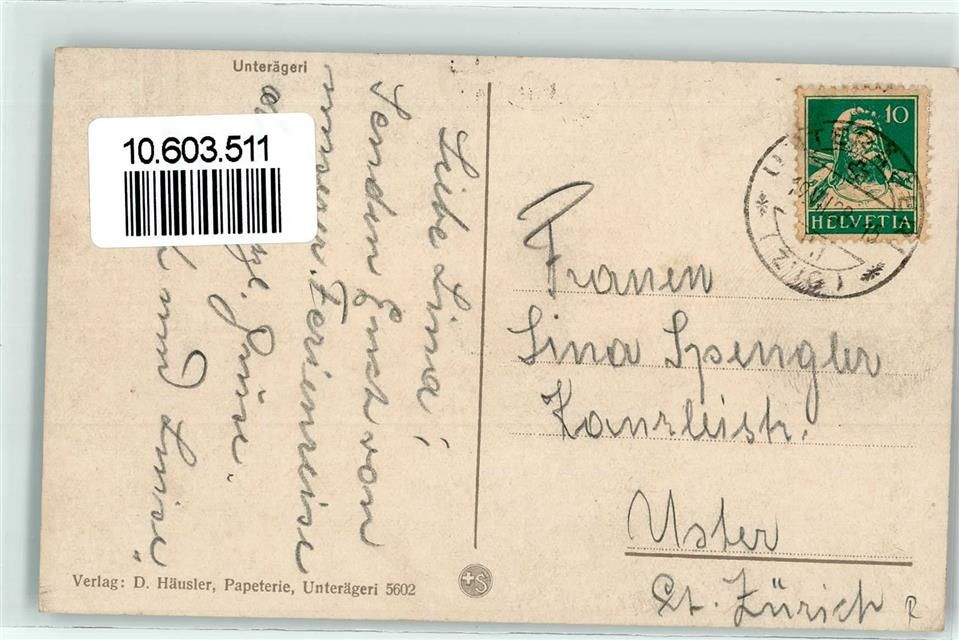 Unterägeri
10.603.511
Liebe Lina!
Senden Euch von
unserer Ferienreise
Grüsse.
und Luise
Frauen
Lina Spengler
Kanzleistr.
Uster
Kt. Zürich
R
10
HELVETIA
Verlag: D. Häusler, Papeterie, Unterägeri 5602
+S